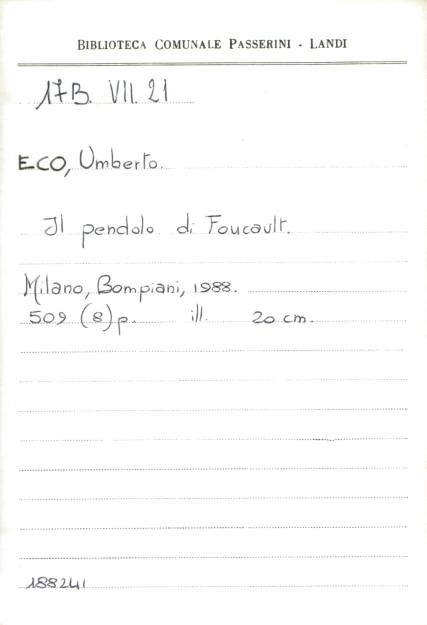 BIBLIOTECA COMUNALE PASSERINI - LANDI
17B. VII. 21
ECO, Umberto.
Il pendolo di Foucault.
Milano, Bompiani, 1988.
509 (8) p. ill. 20 cm.
188241